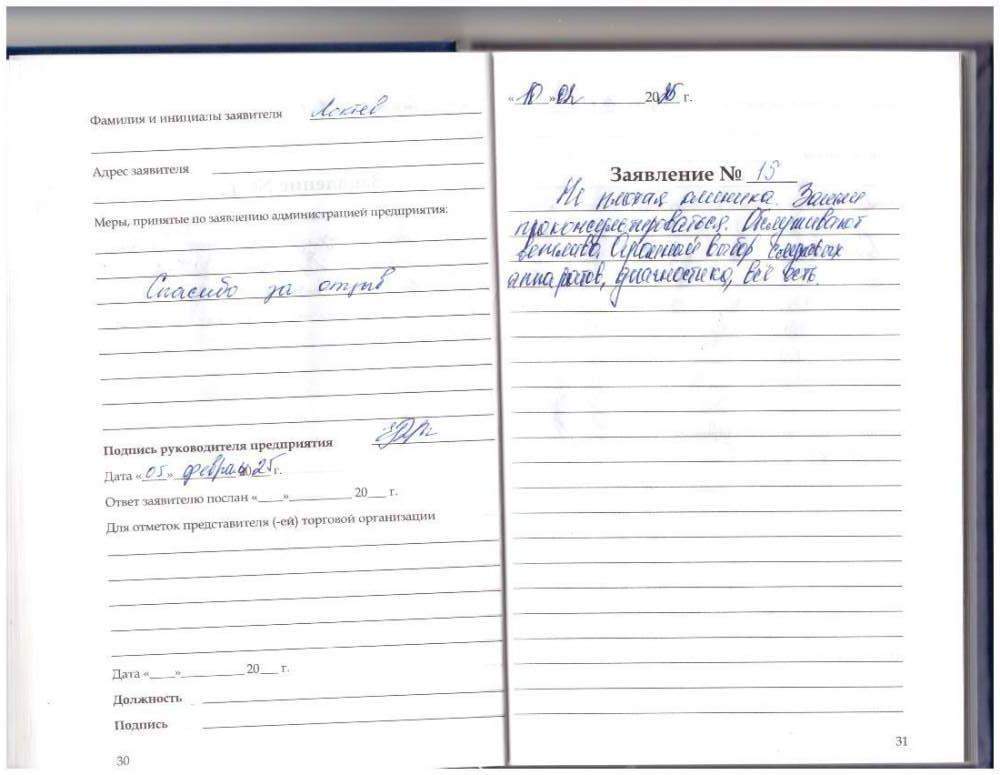 Фамилия и инициалы заявителя Локтев
Адрес заявителя
Меры, принятые по заявлению администрацией предприятия:
Спасибо за отзыв
Подпись руководителя предприятия
Дата «05» февраля 2025 г.
Ответ заявителю послан «____»__________ 20___ г.
Для отметок представителя (-ей) торговой организации
Дата «____»__________ 20___ г.
Должность
Подпись
30
«10» 02 2025 г.
Заявление № 15
Не плохая клиника. Зашли
проконсультироваться. Обслуживают
вежливо. Огромный выбор слуховых
аппаратов, диагностика, всё есть.
31